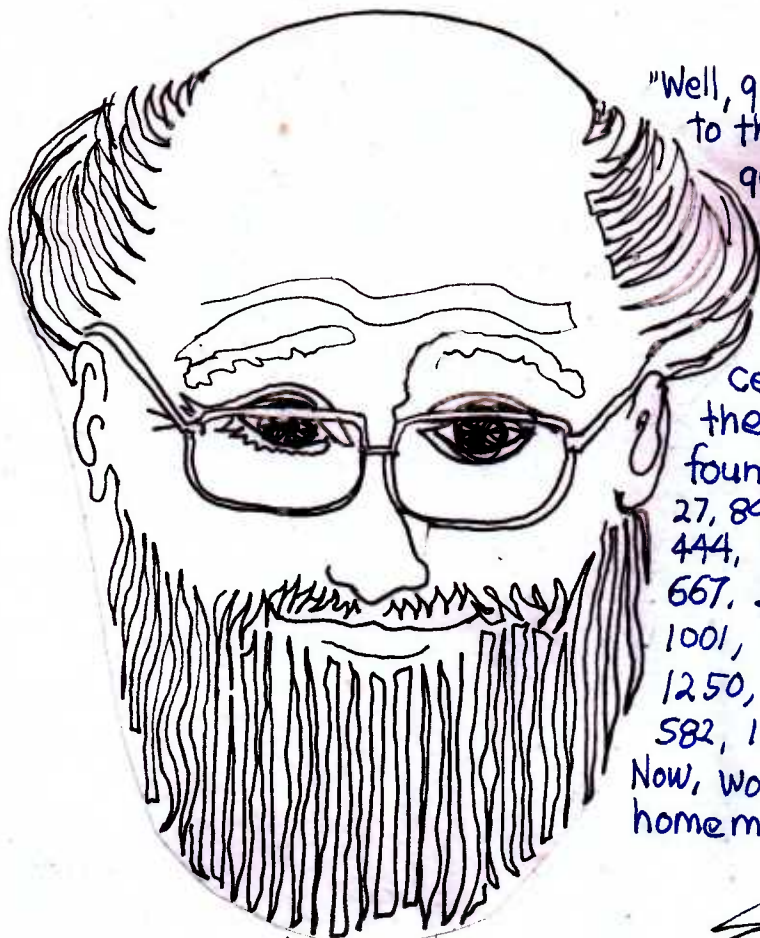 "Well, 9
to th
9
ce
the
foun
27, 89
444,
667,
1001,
1250,
582, 1
Now, wo
homem